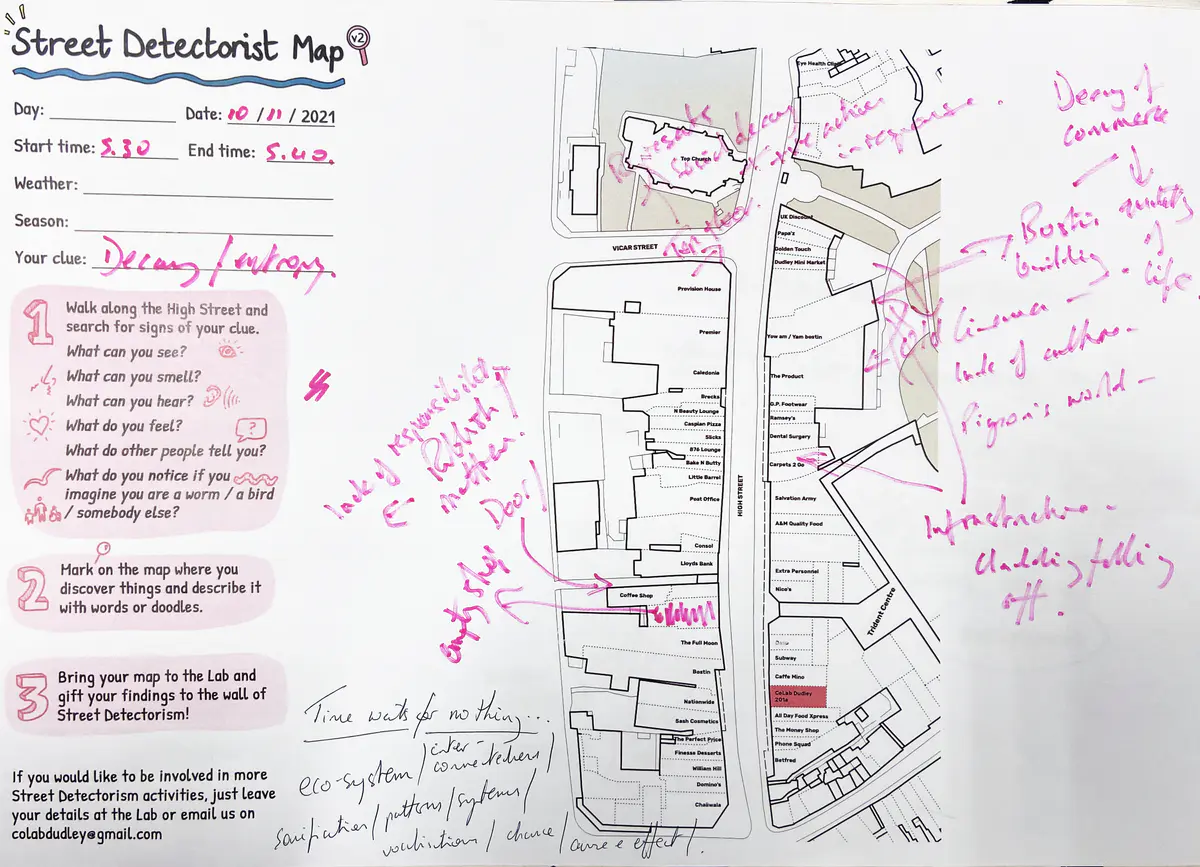 Street Detectorist Map v2
Day:
Date: 10 / 11 / 2021
Start time: 5.30
End time: 5.40.
Weather:
Season:
Your clue: Decay / entropy.
1
Walk along the High Street and
search for signs of your clue.
What can you see?
What can you smell?
What can you hear?
What do you feel?
What do other people tell you?
What do you notice if you
imagine you are a worm / a bird
/ somebody else?
2
Mark on the map where you
discover things and describe it
with words or doodles.
3
Bring your map to the Lab and
gift your findings to the wall of
Street Detectorism!
If you would like to be involved in more
Street Detectorism activities, just leave
your details at the Lab or email us on
colabdudley@gmail.com
lack of responsibility
Rubbish
mattress.
Door!
empty shop
Time waits for nothing...
eco-system / inter-connections /
sonification / patterns / systems /
/ chance / cause & effect /.
Eye Health Clinic
Top Church
social decay
in response.
VICAR STREET
HIGH STREET
Trident Centre
Provision House
Premier
Caledonia
Brecks
N Beauty Lounge
Caspian Pizza
Slicks
876 Lounge
Bake N Butty
Little Barrel
Post Office
Consol
Lloyds Bank
Coffee Shop
The Full Moon
Bostin
Nationwide
Sash Cosmetics
The Perfect Price
Finesse Desserts
William Hill
Domino's
Chaiiwala
UK Discount
Papa's
Golden Touch
Dudley Mini Market
Yow am / Yam bostin
The Product
G.P. Footwear
Ramsey's
Dental Surgery
Carpets 2 Go
Salvation Army
A&M Quality Food
Extra Personnel
Nico's
Subway
Caffe Mino
CoLab Dudley
201a
All Day Food Xpress
The Money Shop
Phone Squad
Betfred
Decay of
commerce
quality
of
life.
building.
old Cinema -
lack of culture -
Pigeon's world -
Infrastructure -
cladding falling
off.